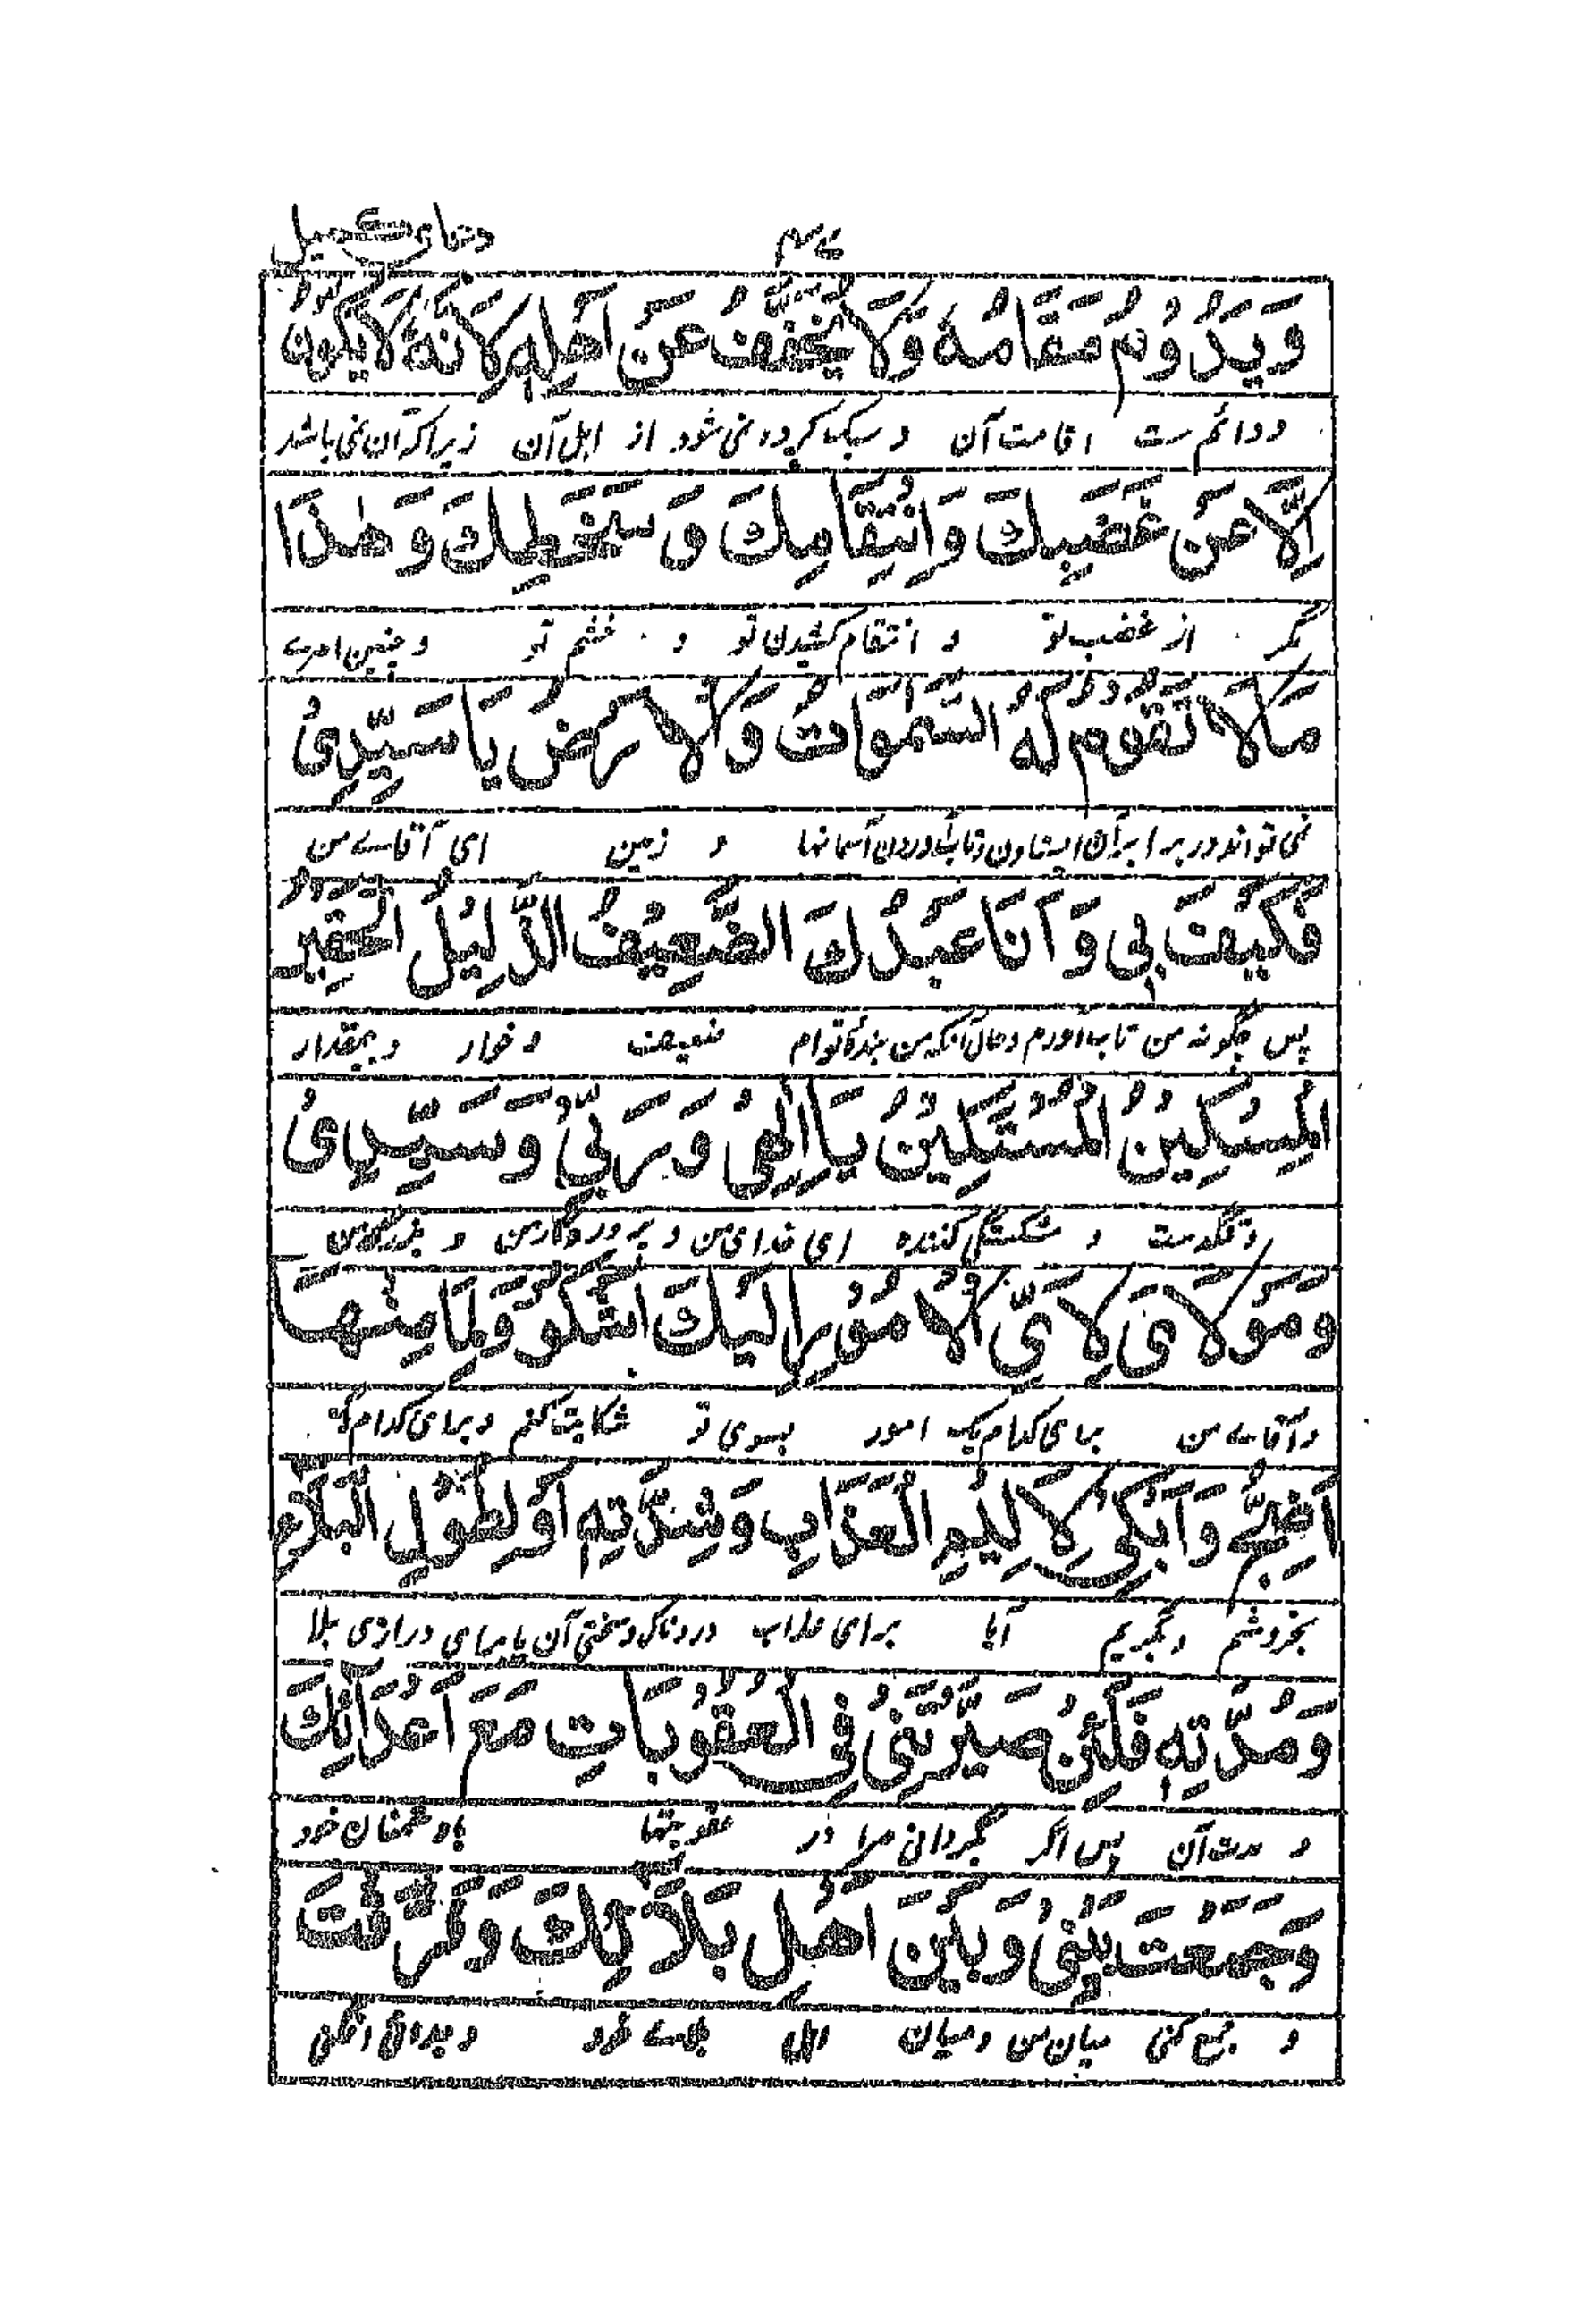 دعای کمیل
وَيَدُوْمُ مَقَامُهُ وَلَا يُخَفَّفُ عَنْ اَهْلِهِ لِاَنَّهُ لَا يَكُوْنُ
و دائم ست اقامت آن و سبک کرده نمی شود از اهل آن زیرا که آن نمی باشد
اِلَّا عَنْ غَضَبِكَ وَانْتِقَامِكَ وَسَخَطِكَ وَهٰذَا
مگر از غضب تو و انتقام کشیدن تو و خشم تو و چنین امرے
مَالَا تَقُوْمُ لَهُ السَّمٰوَاتُ وَالْاَرْضُ يَا سَيِّدِيْ
نمی تواند در برابر آن ایستادن و تاب آوردن آسمانها و زمین ای آقاے من
فَكَيْفَ بِي وَاَنَا عَبْدُكَ الضَّعِيْفُ الذَّلِيْلُ الْحَقِيْرُ
پس چگونه من تاب آورم و حال آنکه من بنده توام ضعیف و خوار و بیمقدار
الْمِسْكِيْنُ الْمُسْتَكِيْنُ يَا اِلٰهِيْ وَرَبِّيْ وَسَيِّدِيْ
و تنگدست و شکستگی کننده ای خدای من و پروردگار من و بزرگ من
وَمَوْلَايَ لِاَيِّ الْاُمُوْرِ اِلَيْكَ اَشْكُوْ وَلِمَا مِنْهَا
و آقاے من برای کدام یک امور بسوی تو شکایت کنم و برای کدام
اَضِجُّ وَاَبْكِيْ لِاَلِيْمِ الْعَذَابِ وَشِدَّتِهِ اَوْ لِطُوْلِ الْبَلَاءِ
بخروشم و بگریم آیا برای عذاب دردناک و سختی آن یا برای درازی بلا
وَمُدَّتِهِ فَلَئِنْ صَيَّرْتَنِيْ فِي الْعُقُوْبَاتِ مَعَ اَعْدَائِكَ
و مدت آن پس اگر بگردانی مرا در عقوبتها با دشمنان خود
وَجَمَعْتَ بَيْنِيْ وَبَيْنَ اَهْلِ بَلَائِكَ وَفَرَّقْتَ
و جمع کنی میان من و میان اهل بلاے خود و جدائی افکنی